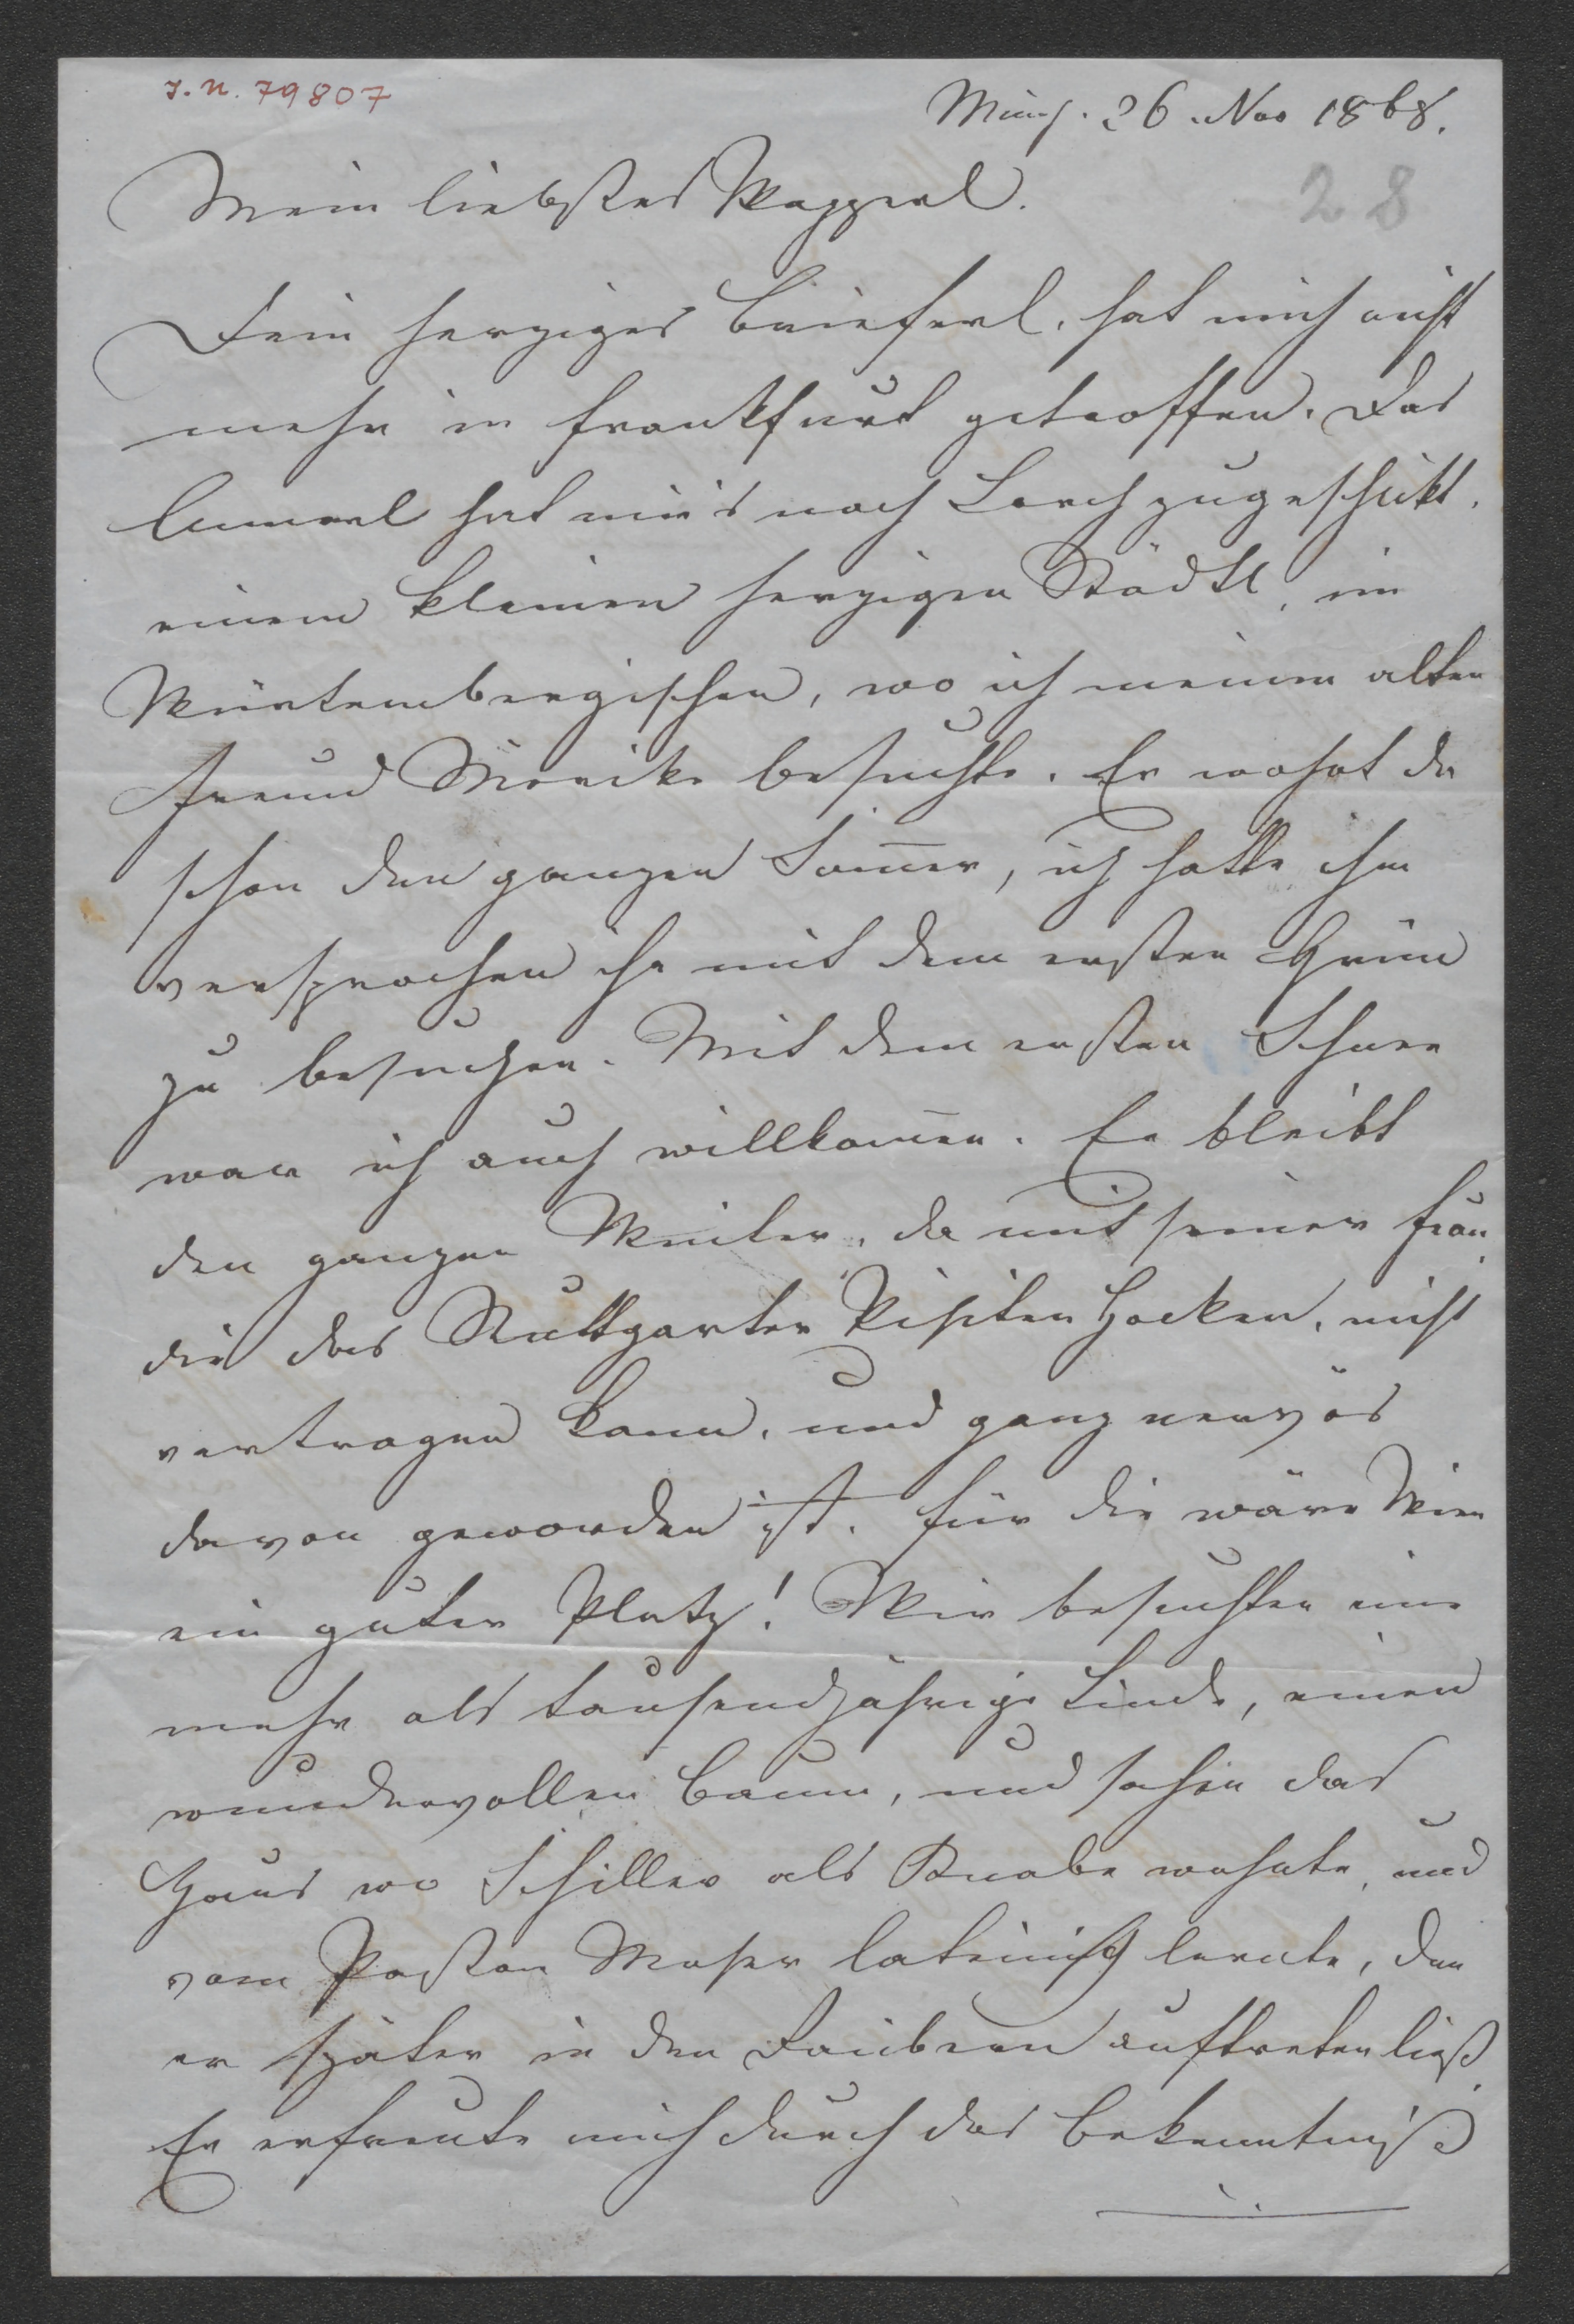 I. N. 79807
Münch. 26. Nov 1868.
28
Mein liebstes Wapperl.
Dein herziges Brieferl, hat mich nicht
mehr in Frankfurt getroffen. Das
Ennerl hat mir's nach Lorch zugeschickt.
einem kleinen herzigen Städtl, im
Würtembergischen, wo ich meinen alten
Freund Mörike besuchte. Er wohnt da
schon den ganzen Som̅er, ich hatte ihm
versprochen ihn mit dem ersten Grün
zu besuchen. Mit dem ersten Schnee
war ich auch willkom̅en. Er bleibt
den ganzen Winter, da mit seiner Frau,
die das Stuttgarter Visiten Hocken, nicht
vertragen kann, und ganz nervös
davon geworden ist. Für die wäre Wien
ein guter Platz! Wir besuchten eine
mehr als tausendjährige Linde, einen
wundervollen Baum, und sahen das
Haus wo Schiller als Knabe wohnte, und
vom Pastor Moser lateinisch lernte, den
er später in den Räubern auftreten ließ.
Er erfreute mich durch das Bekenntniß